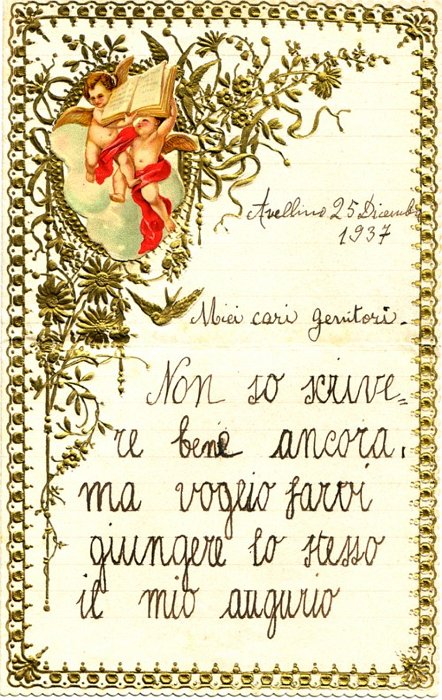 Avellino 25 Dicembr
1937
Miei cari genitori.
Non so scrive=
re bene ancora,
ma voglio farvi
giungere lo stesso
il mio augurio